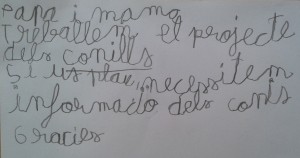 papa i mama
treballem el projecte
dels conills
Si us plau, necessitem
informació dels conills
Gracies